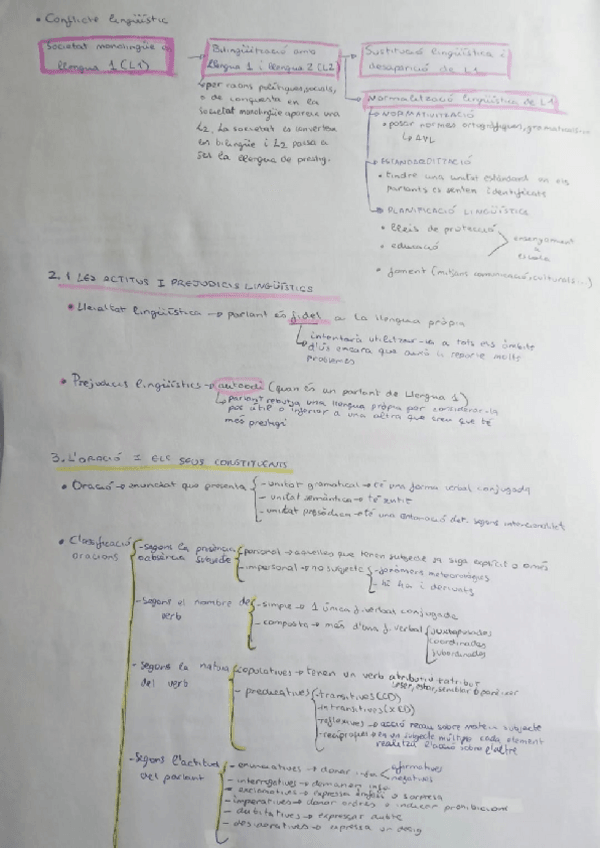 • Conflicte lingüístic
Societat monolingüe
llengua 1 (L1)
Bilingüització amb
llengua 1 i llengua 2 (L2)
Substitució lingüística i
desaparició de L1
Normalització lingüística de L1
↳ per raons polítiques, socials,
o de conquesta en la
societat monolingüe apareix una
L2. La societat es converteix
en bilingüe i L2 passa a
ser la llengua de prestigi.
→ NORMATIVITZACIÓ
• posar normes ortogràfiques, gramaticals
↳ AVL
→ ESTANDARDITZACIÓ
• tindre una varietat estàndard en els
parlants es senten identificats
→ PLANIFICACIÓ LINGÜÍSTICA
• lleis de protecció
• educació
ensenyament
escola
• foment (mitjans comunicació, culturals...)
2.1 LES ACTITUS I PREJUDICIS LINGÜÍSTICS
• Lleialtat lingüística → parlant és fidel a la llengua pròpia
↳ intentarà utilitzar-la a tots els àmbits
d'ús encara que això li reporte molts
problemes
• Prejudicis lingüístics → autoodi (quan és un parlant de llengua 1)
↳ parlant rebutja una llengua pròpia per considerar-la
poc útil o inferior a una altra que creu que té
més prestigi
3. L'ORACIÓ I ELS SEUS CONSTITUENTS
• Oració → enunciat que presenta
- unitat gramatical → té una forma verbal conjugada
- unitat semàntica → té sentit
- unitat prosòdica → té una entonació det. segons intencionalitat
• Classificació
oracions
- segons la presència
o absència subjecte
- personal → aquelles que tenen subjecte ja siga explícit o omés
- impersonal → no subjecte
- fenòmens meteorològics
- hi ha i derivats
- segons el nombre de
verb
- simple → 1 única f. verbal conjugada
- composta → més d'una f. verbal
juxtaposades
coordinades
subordinades
- segons la natura
del verb
- copulatives → tenen un verb atributiu + atribut
(ser, estar, semblar o parèixer
- predicatives
- transitives (CD)
- intransitives (X CD)
- reflexives → acció recau sobre mateix subjecte
- recíproques → en un subjecte múltiple cada element
realitza l'acció sobre l'altre
- segons l'actitud
del parlant
- enunciatives → donar info
afirmatives
negatives
- interrogatives → demanem info
- exclamatives → expressa èmfasi o sorpresa
- imperatives → donar ordres o indicar prohibicions
- dubitatives → expressar dubte
- desideratives → expressa un desig